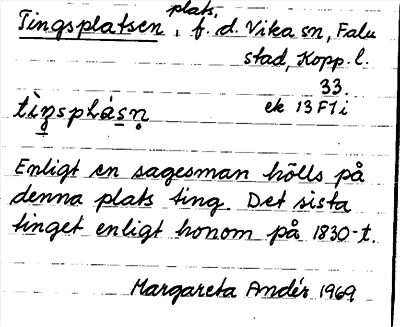 plats,
Tingsplatsen, f. d. Vika sn, Falu
stad, Kopp. l.
33.
ek 13 F1 i
Enligt en sagesman hölls på
denna plats ting. Det sista
tinget enligt honom på 1830-t.
Margareta Andér 1969